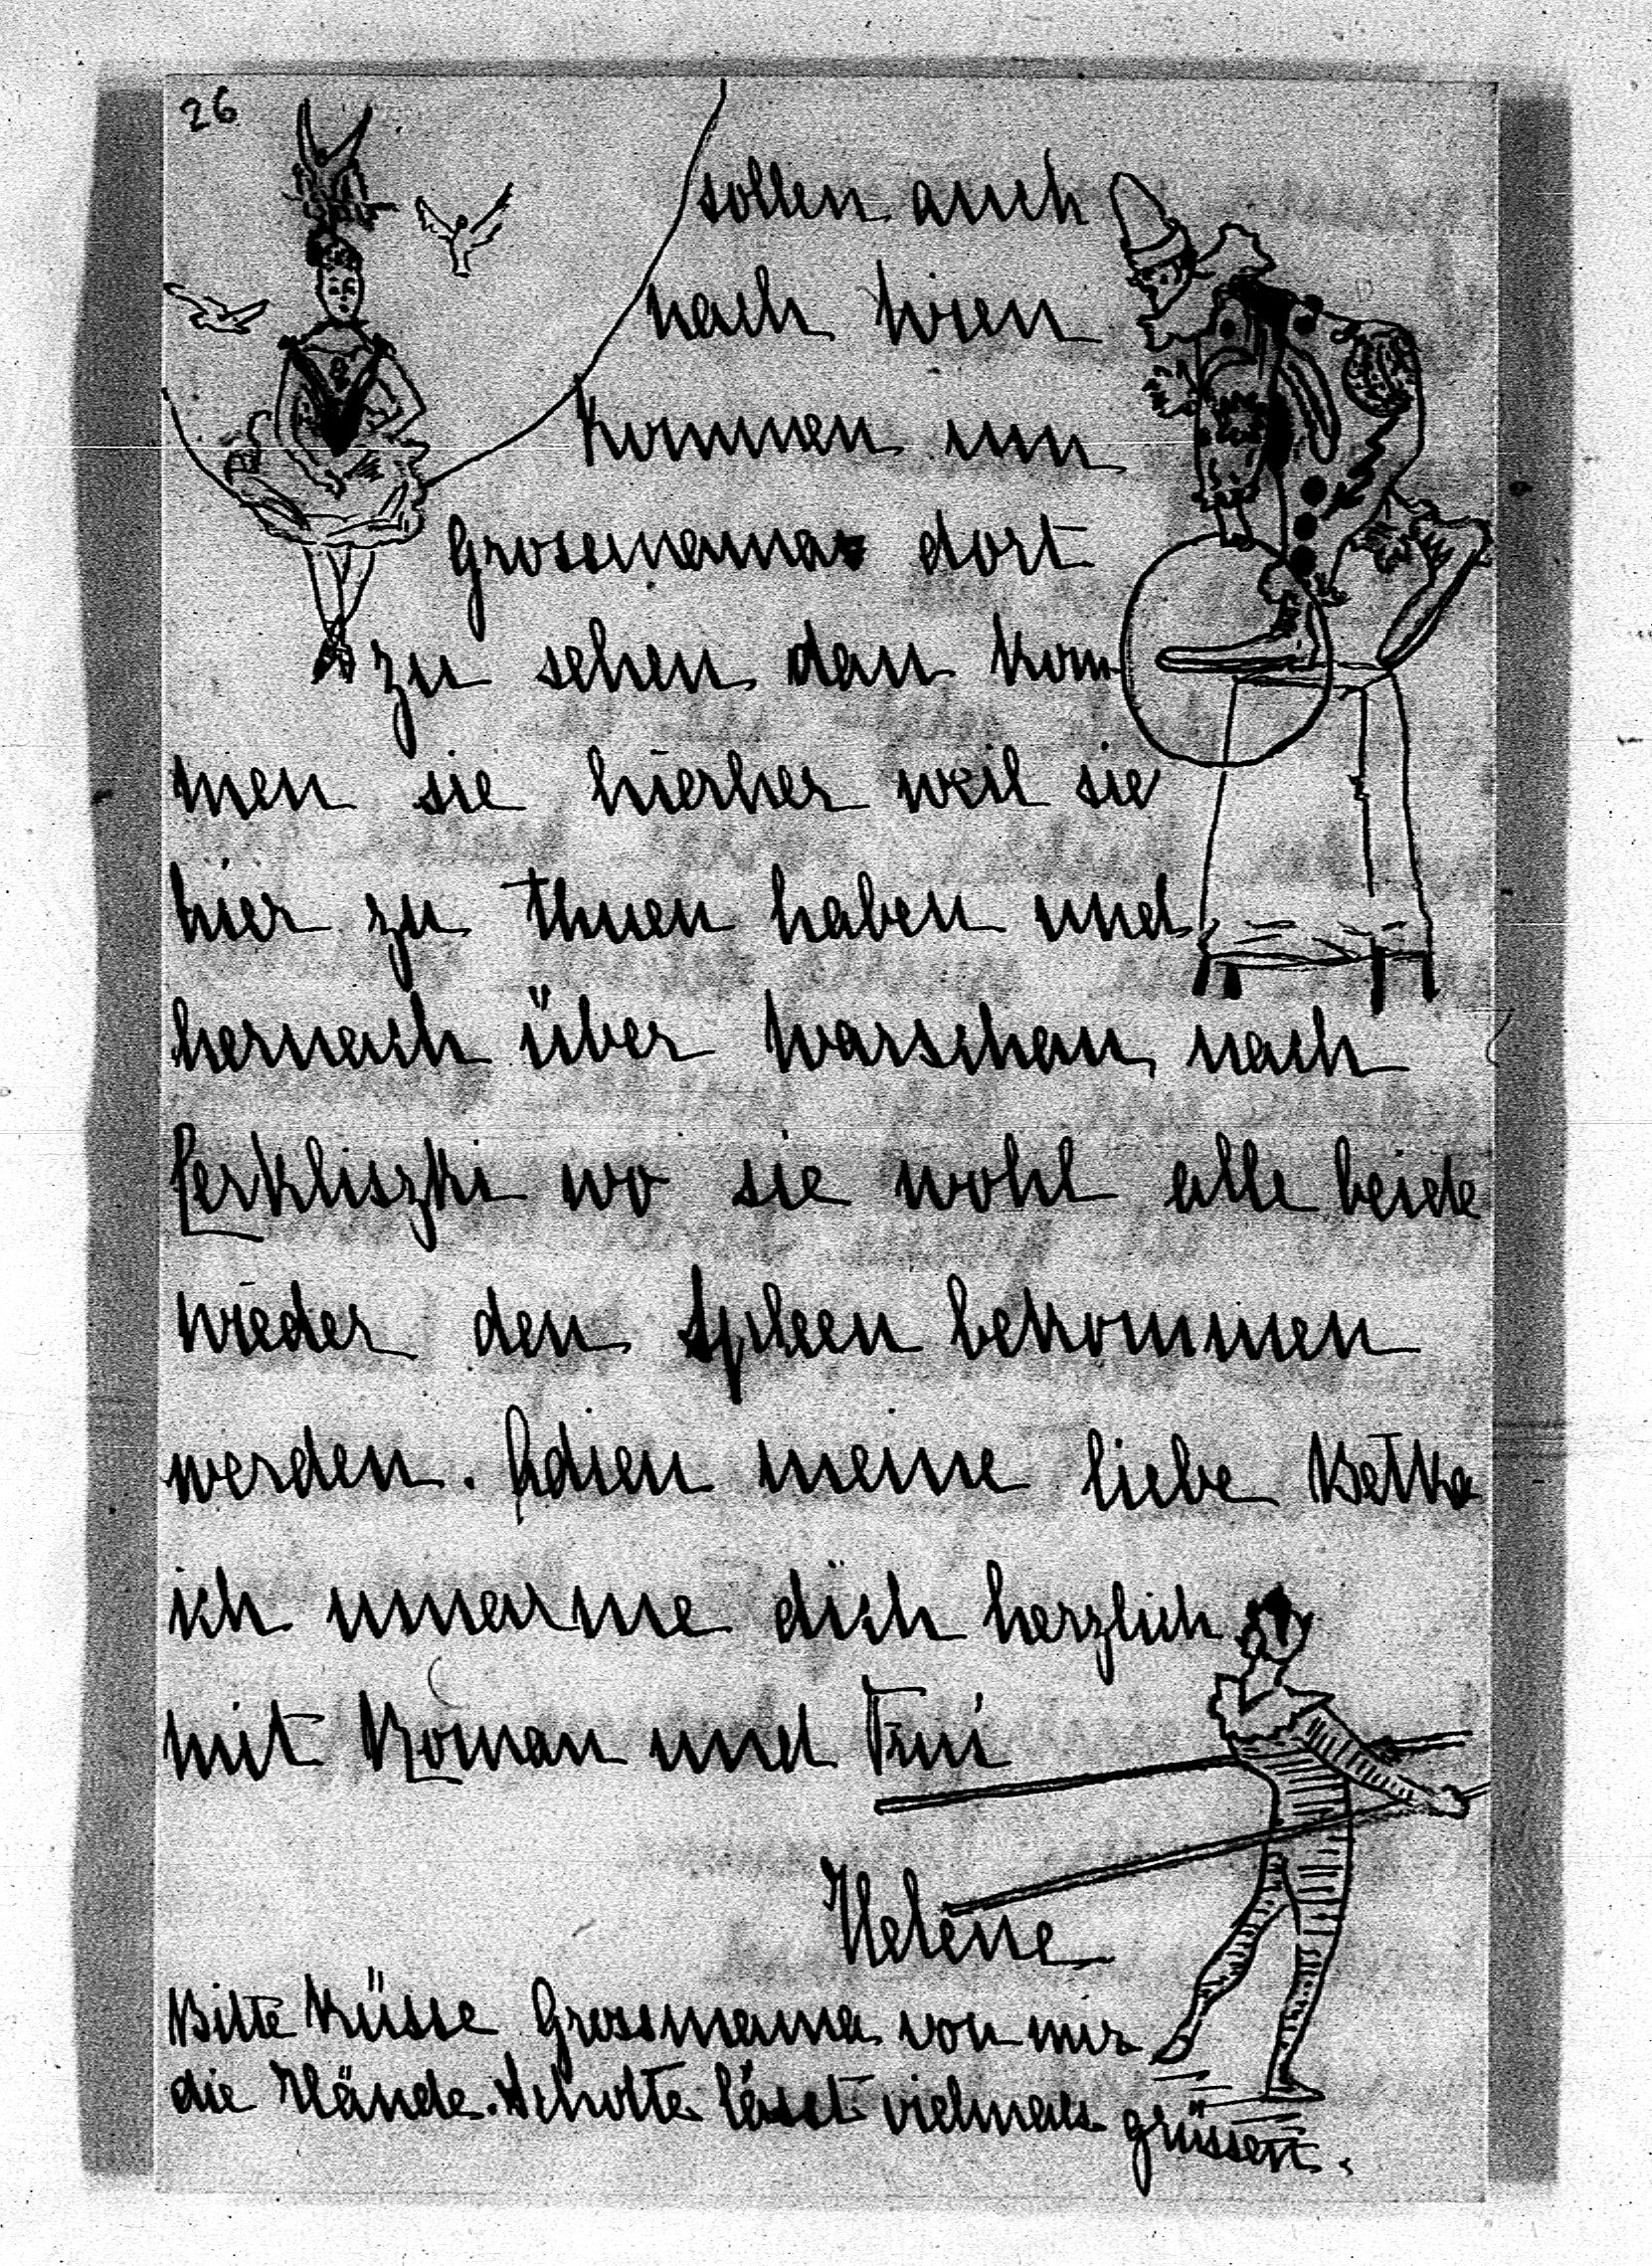 26
sollen auch
nach Wien
kommen um
Grossmama dort
zu sehen dan kom
men sie hierher weil sie
hier zu thuen haben und
hernach über Warschau nach
Terkliszki wo sie wohl alle beide
wieder den Spleen bekommen
werden. Adieu meine liebe Betka
ich umarme dich herzlich
mit Roman und Fini
Helene
Bitte küsse Grossmama von mir
die Hände. Schotte lässt vielmals grüssen.